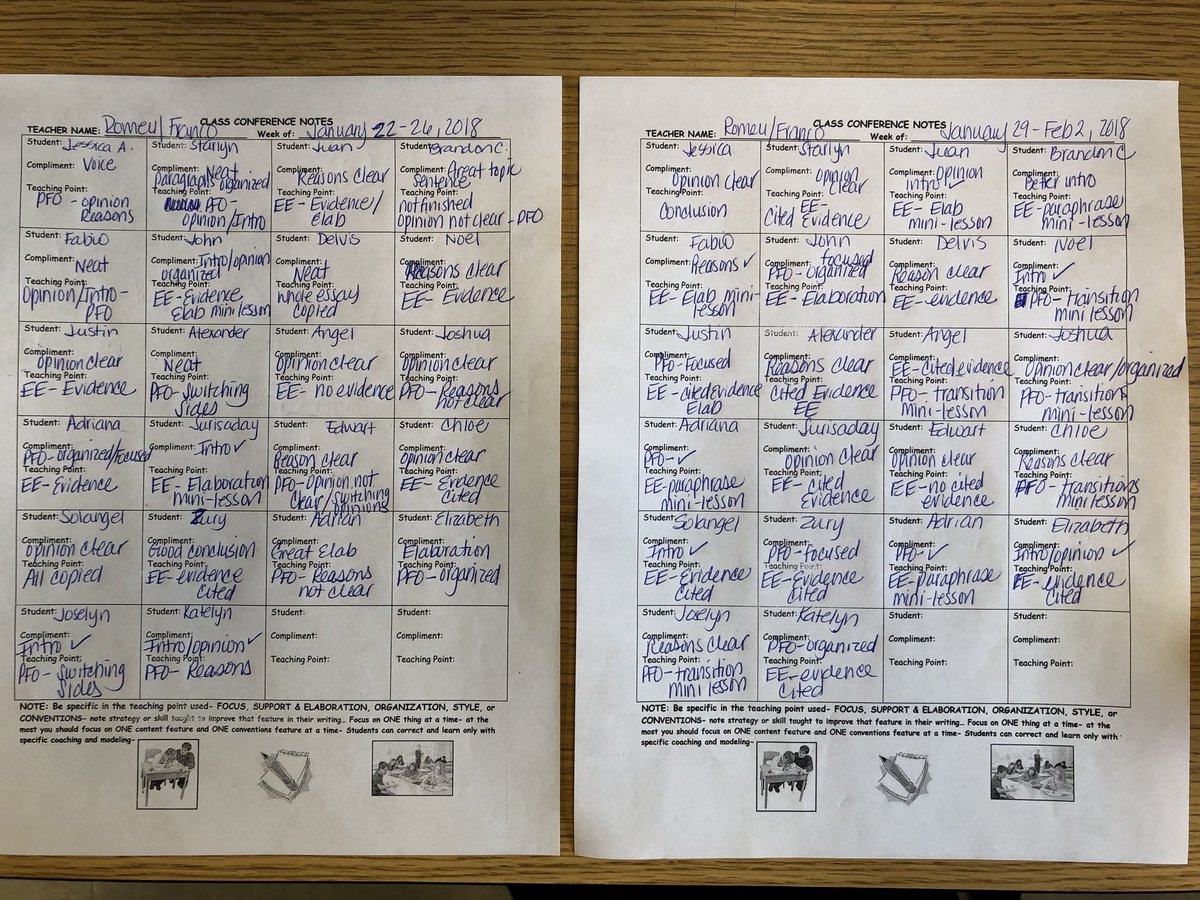 CLASS CONFERENCE NOTES
TEACHER NAME: Romeu/Franco Week of: January 22-26, 2018
Student: Jessica A.
Compliment: Voice
Teaching Point:
PFO - opinion
Reasons
Student: Starlyn
Compliment: Neat
paragraphs organized
Teaching Point:
PFO-
opinion/Intro
Student: Juan
Compliment:
Reasons clear
Teaching Point:
EE - Evidence/
elab
Student: Brandon C.
Compliment: Great topic
sentence
Teaching Point:
not finished
Opinion not clear - PFO
Student: Fabio
Compliment:
Neat
Teaching Point:
Opinion/Intro -
PFO
Student: John
Compliment: Intro/opinion
organized
Teaching Point:
EE - Evidence
Elab mini lesson
Student: Delvis
Compliment:
Neat
Teaching Point:
whole essay
copied
Student: Noel
Compliment:
Reasons clear
Teaching Point:
EE - Evidence
Student: Justin
Compliment:
opinion clear
Teaching Point:
EE - Evidence
Student: Alexander
Compliment:
Neat
Teaching Point:
PFO - Switching
Sides
Student: Angel
Compliment:
Opinion clear
Teaching Point:
EE - no evidence
Student: Joshua
Compliment:
Opinion clear
Teaching Point:
PFO - Reasons
not clear
Student: Adriana
Compliment:
PFO - organized/focused
Teaching Point:
EE - Evidence
Student: Jurisaday
Compliment: Intro ✓
Teaching Point:
EE - Elaboration
mini-lesson
Student: Edwart
Compliment:
Reason clear
Teaching Point:
PFO - Opinion not
clear/switching
opinions
Student: Chloe
Compliment:
Opinion clear
Teaching Point:
EE - Evidence
cited
Student: Solangel
Compliment:
opinion clear
Teaching Point:
All copied
Student: Zury
Compliment:
Good conclusion
Teaching Point:
EE - evidence
cited
Student: Adrian
Compliment:
Great Elab
Teaching Point:
PFO - Reasons
not clear
Student: Elizabeth
Compliment:
Elaboration
Teaching Point:
PFO - organized
Student: Joselyn
Compliment:
Intro ✓
Teaching Point:
PFO - Switching
sides
Student: Katelyn
Compliment:
Intro/opinion ✓
Teaching Point:
PFO - Reasons
Student:
Compliment:
Teaching Point:
Student:
Compliment:
Teaching Point:
NOTE: Be specific in the teaching point used- FOCUS, SUPPORT & ELABORATION, ORGANIZATION, STYLE, or
CONVENTIONS- note strategy or skill taught to improve that feature in their writing... Focus on ONE thing at a time- at the
most you should focus on ONE content feature and ONE conventions feature at a time- Students can correct and learn only with
specific coaching and modeling-
CLASS CONFERENCE NOTES
TEACHER NAME: Romeu/Franco Week of: January 29-Feb 2, 2018
Student: Jessica
Compliment:
Opinion clear
Teaching Point:
Conclusion
Student: Starlyn
Compliment: opinion
clear
Teaching Point:
EE -
Cited Evidence
Student: Juan
Compliment: Opinion
intro ✓
Teaching Point:
EE - Elab
mini-lesson
Student: Brandon C
Compliment:
Better intro
Teaching Point:
EE - paraphrase
mini-lesson
Student: Fabio
Compliment:
Reasons ✓
Teaching Point:
EE - Elab mini-
lesson
Student: John
Compliment: focused
PFO - organized
Teaching Point:
EE - Elaboration
Student: Delvis
Compliment:
Reason clear
Teaching Point:
EE - evidence
Student: Noel
Compliment:
Intro ✓
Teaching Point:
PFO - transition
mini lesson
Student: Justin
Compliment:
PFO - Focused
Teaching Point:
EE - cited evidence
Elab
Student: Alexander
Compliment:
Reasons clear
Teaching Point:
Cited Evidence
EE
Student: Angel
Compliment:
EE - cited evidence
Teaching Point:
PFO - transition
mini-lesson
Student: Joshua
Compliment:
Opinion clear/organized
Teaching Point:
PFO - transition
mini-lesson
Student: Adriana
Compliment:
PFO - ✓
Teaching Point:
EE - paraphrase
mini-lesson
Student: Jurisaday
Compliment:
opinion clear
Teaching Point:
EE - cited
Evidence
Student: Edwart
Compliment:
Opinion clear
Teaching Point:
EE - no cited
evidence
Student: Chloe
Compliment:
Reasons clear
Teaching Point:
PFO - transitions
mini lesson
Student: Solangel
Compliment:
Intro ✓
Teaching Point:
EE - Evidence
Cited
Student: Zury
Compliment:
PFO - focused
Teaching Point:
EE - Evidence
cited
Student: Adrian
Compliment:
PFO - ✓
Teaching Point:
EE - paraphrase
mini-lesson
Student: Elizabeth
Compliment:
Intro/opinion ✓
Teaching Point:
EE - evidence
cited
Student: Joselyn
Compliment:
Reasons clear
Teaching Point:
PFO - transition
mini lesson
Student: Katelyn
Compliment:
PFO - organized
Teaching Point:
EE - evidence
cited
Student:
Compliment:
Teaching Point:
Student:
Compliment:
Teaching Point:
NOTE: Be specific in the teaching point used- FOCUS, SUPPORT & ELABORATION, ORGANIZATION, STYLE, or
CONVENTIONS- note strategy or skill taught to improve that feature in their writing... Focus on ONE thing at a time- at the
most you should focus on ONE content feature and ONE conventions feature at a time- Students can correct and learn only with
specific coaching and modeling-